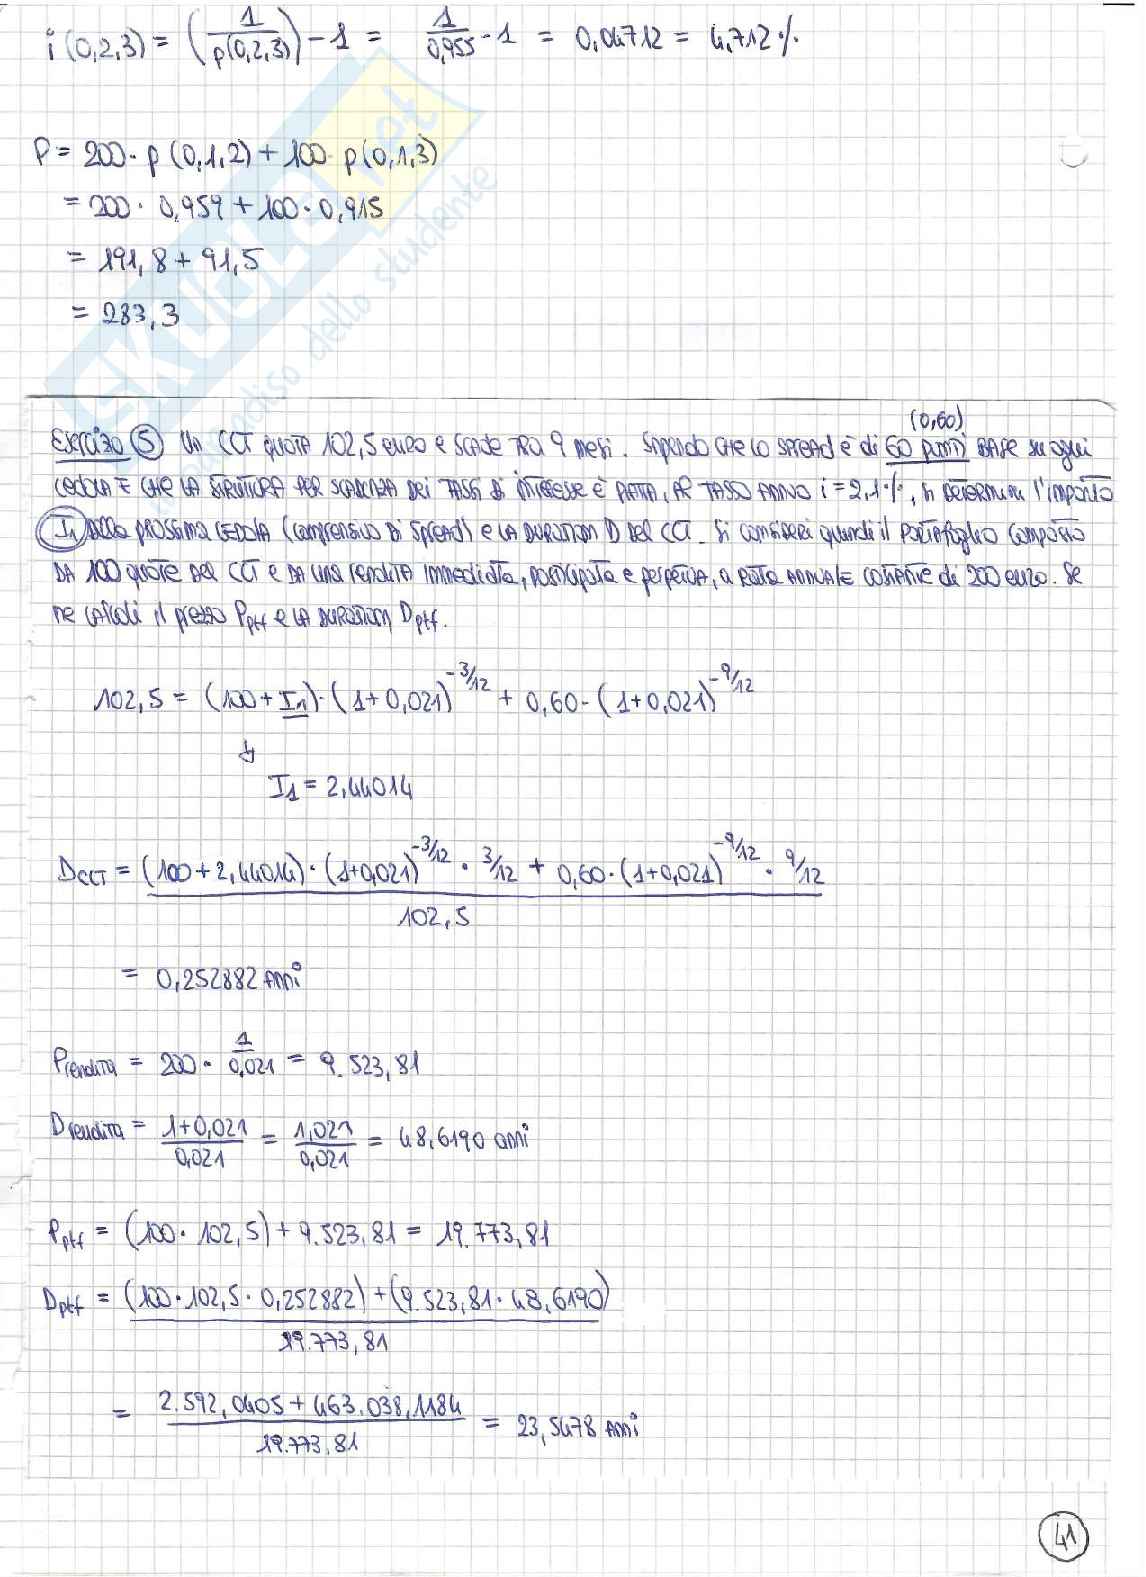 i(0,2,3) = (1/p(0,2,3)) - 1 = 1/0,955 - 1 = 0,04712 = 4,712%
P = 200 · p(0,1,2) + 100 · p(0,1,3)
= 200 · 0,959 + 100 · 0,915
= 191,8 + 91,5
= 283,3
SKUOLA.net
paradiso dello studente
(0,60)
Esercizio 5 Un CCT quota 102,5 euro e scade tra 9 mesi. Sapendo che lo spread è di 60 punti base su ogni
cedola e che la struttura per scadenza dei tassi di interesse è piatta, al tasso annuo i = 2,1%, si determini l'importo
I1 della prossima cedola (comprensivo di spread) e la duration D del CCT. Si consideri quindi il portafoglio composto
da 100 quote del CCT e da una rendita immediata, posticipata e perpetua, a rata annuale costante di 200 euro. Se
ne calcoli il prezzo Pptf e la duration Dptf.
102,5 = (100 + I1) · (1 + 0,021)^-3/12 + 0,60 · (1 + 0,021)^-9/12
↳
I1 = 2,44014
DCCT = (100 + 2,44014) · (1+0,021)^-3/12 · 3/12 + 0,60 · (1+0,021)^-9/12 · 9/12
102,5
= 0,252882 anni
Prendita = 200 · 1/0,021 = 9.523,81
Drendita = 1+0,021/0,021 = 1,021/0,021 = 48,6190 anni
Pptf = (100 · 102,5) + 9.523,81 = 19.773,81
Dptf = (100 · 102,5 · 0,252882) + (9.523,81 · 48,6190)
19.773,81
= 2.592,0405 + 463.038,1184 / 19.773,81 = 23,5478 anni
41